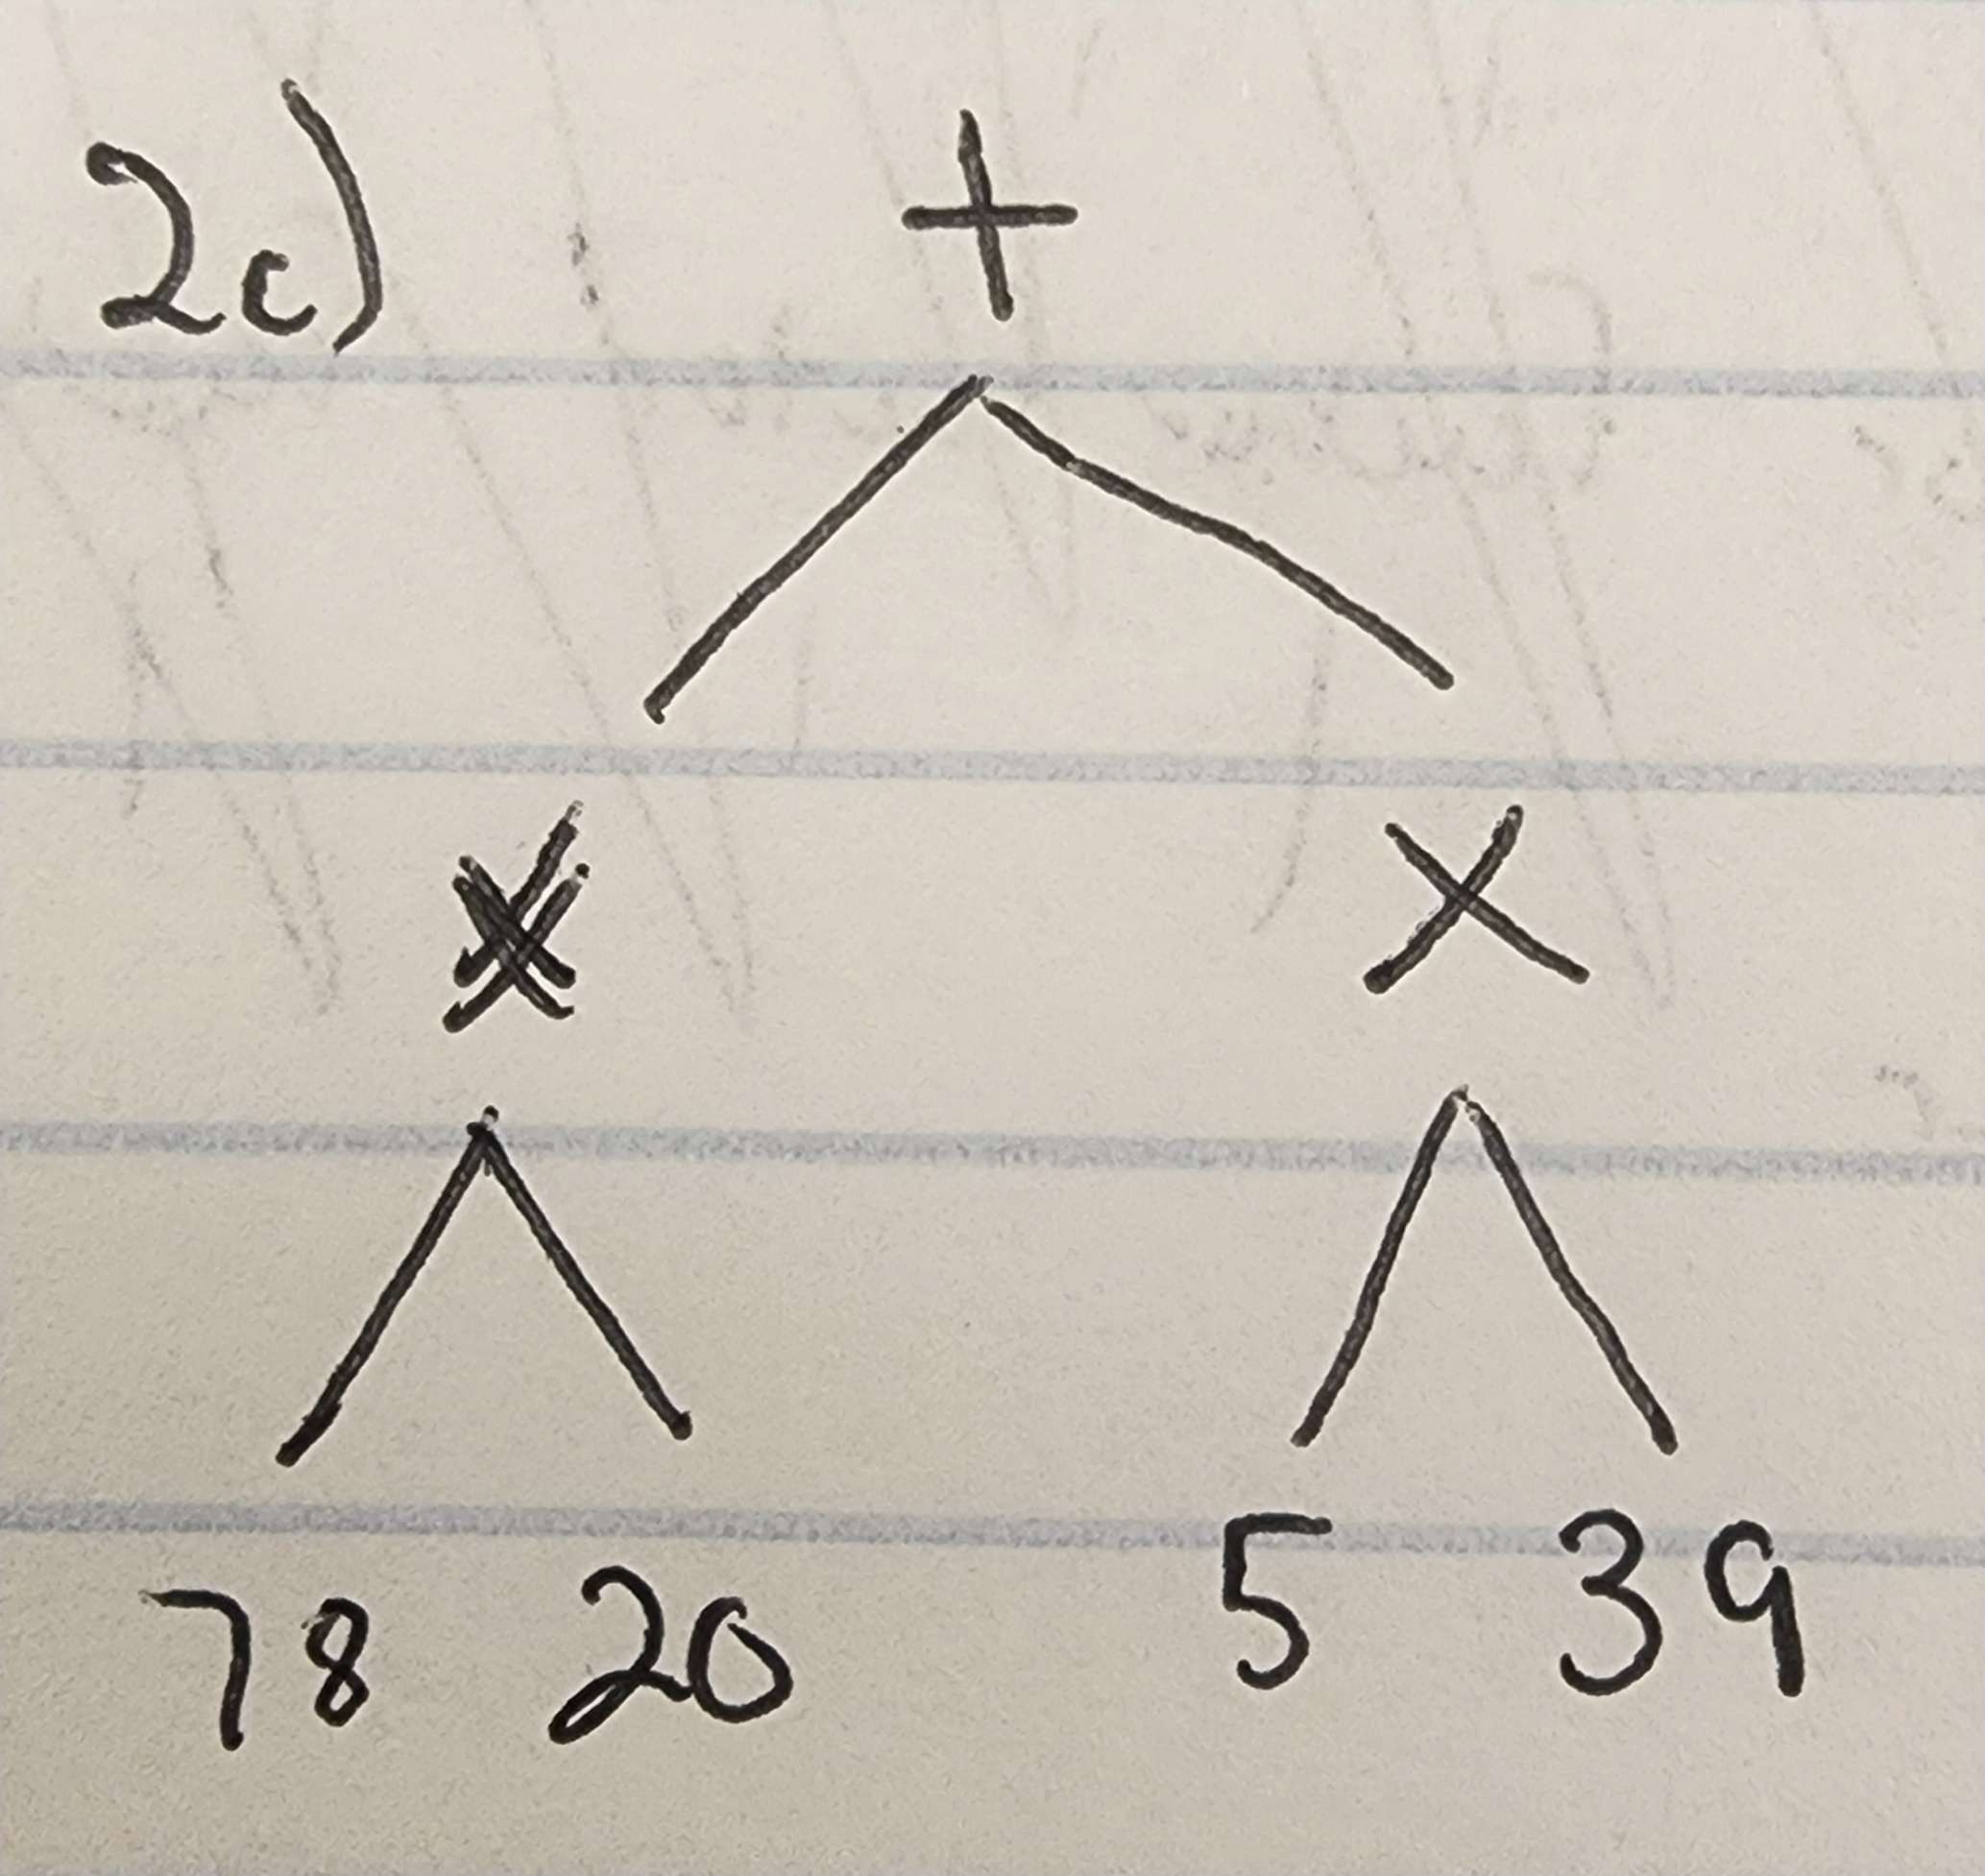 2c) +
× ×
78 20 5 39